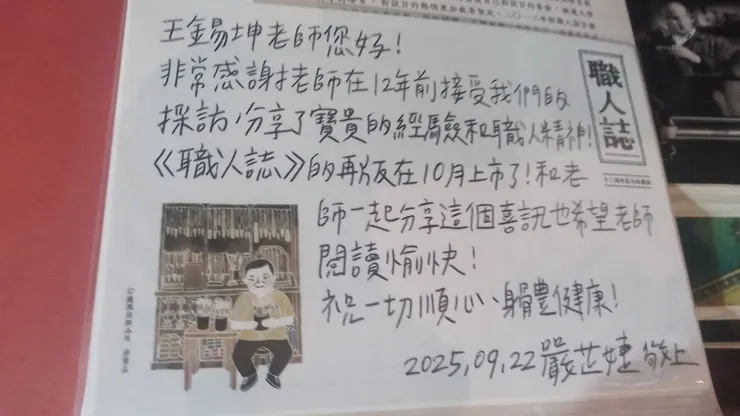 王錫坤老師您好!
非常感謝老師在12年前接受我們的
採訪,分享了寶貴的經驗和職人精神!
《職人誌》的再版在10月上市了!和老
師一起分享這個喜訊也希望老師
閱讀愉快!
祝一切順心、身體健康!
2025.09.22 嚴芷婕 敬上
職人誌